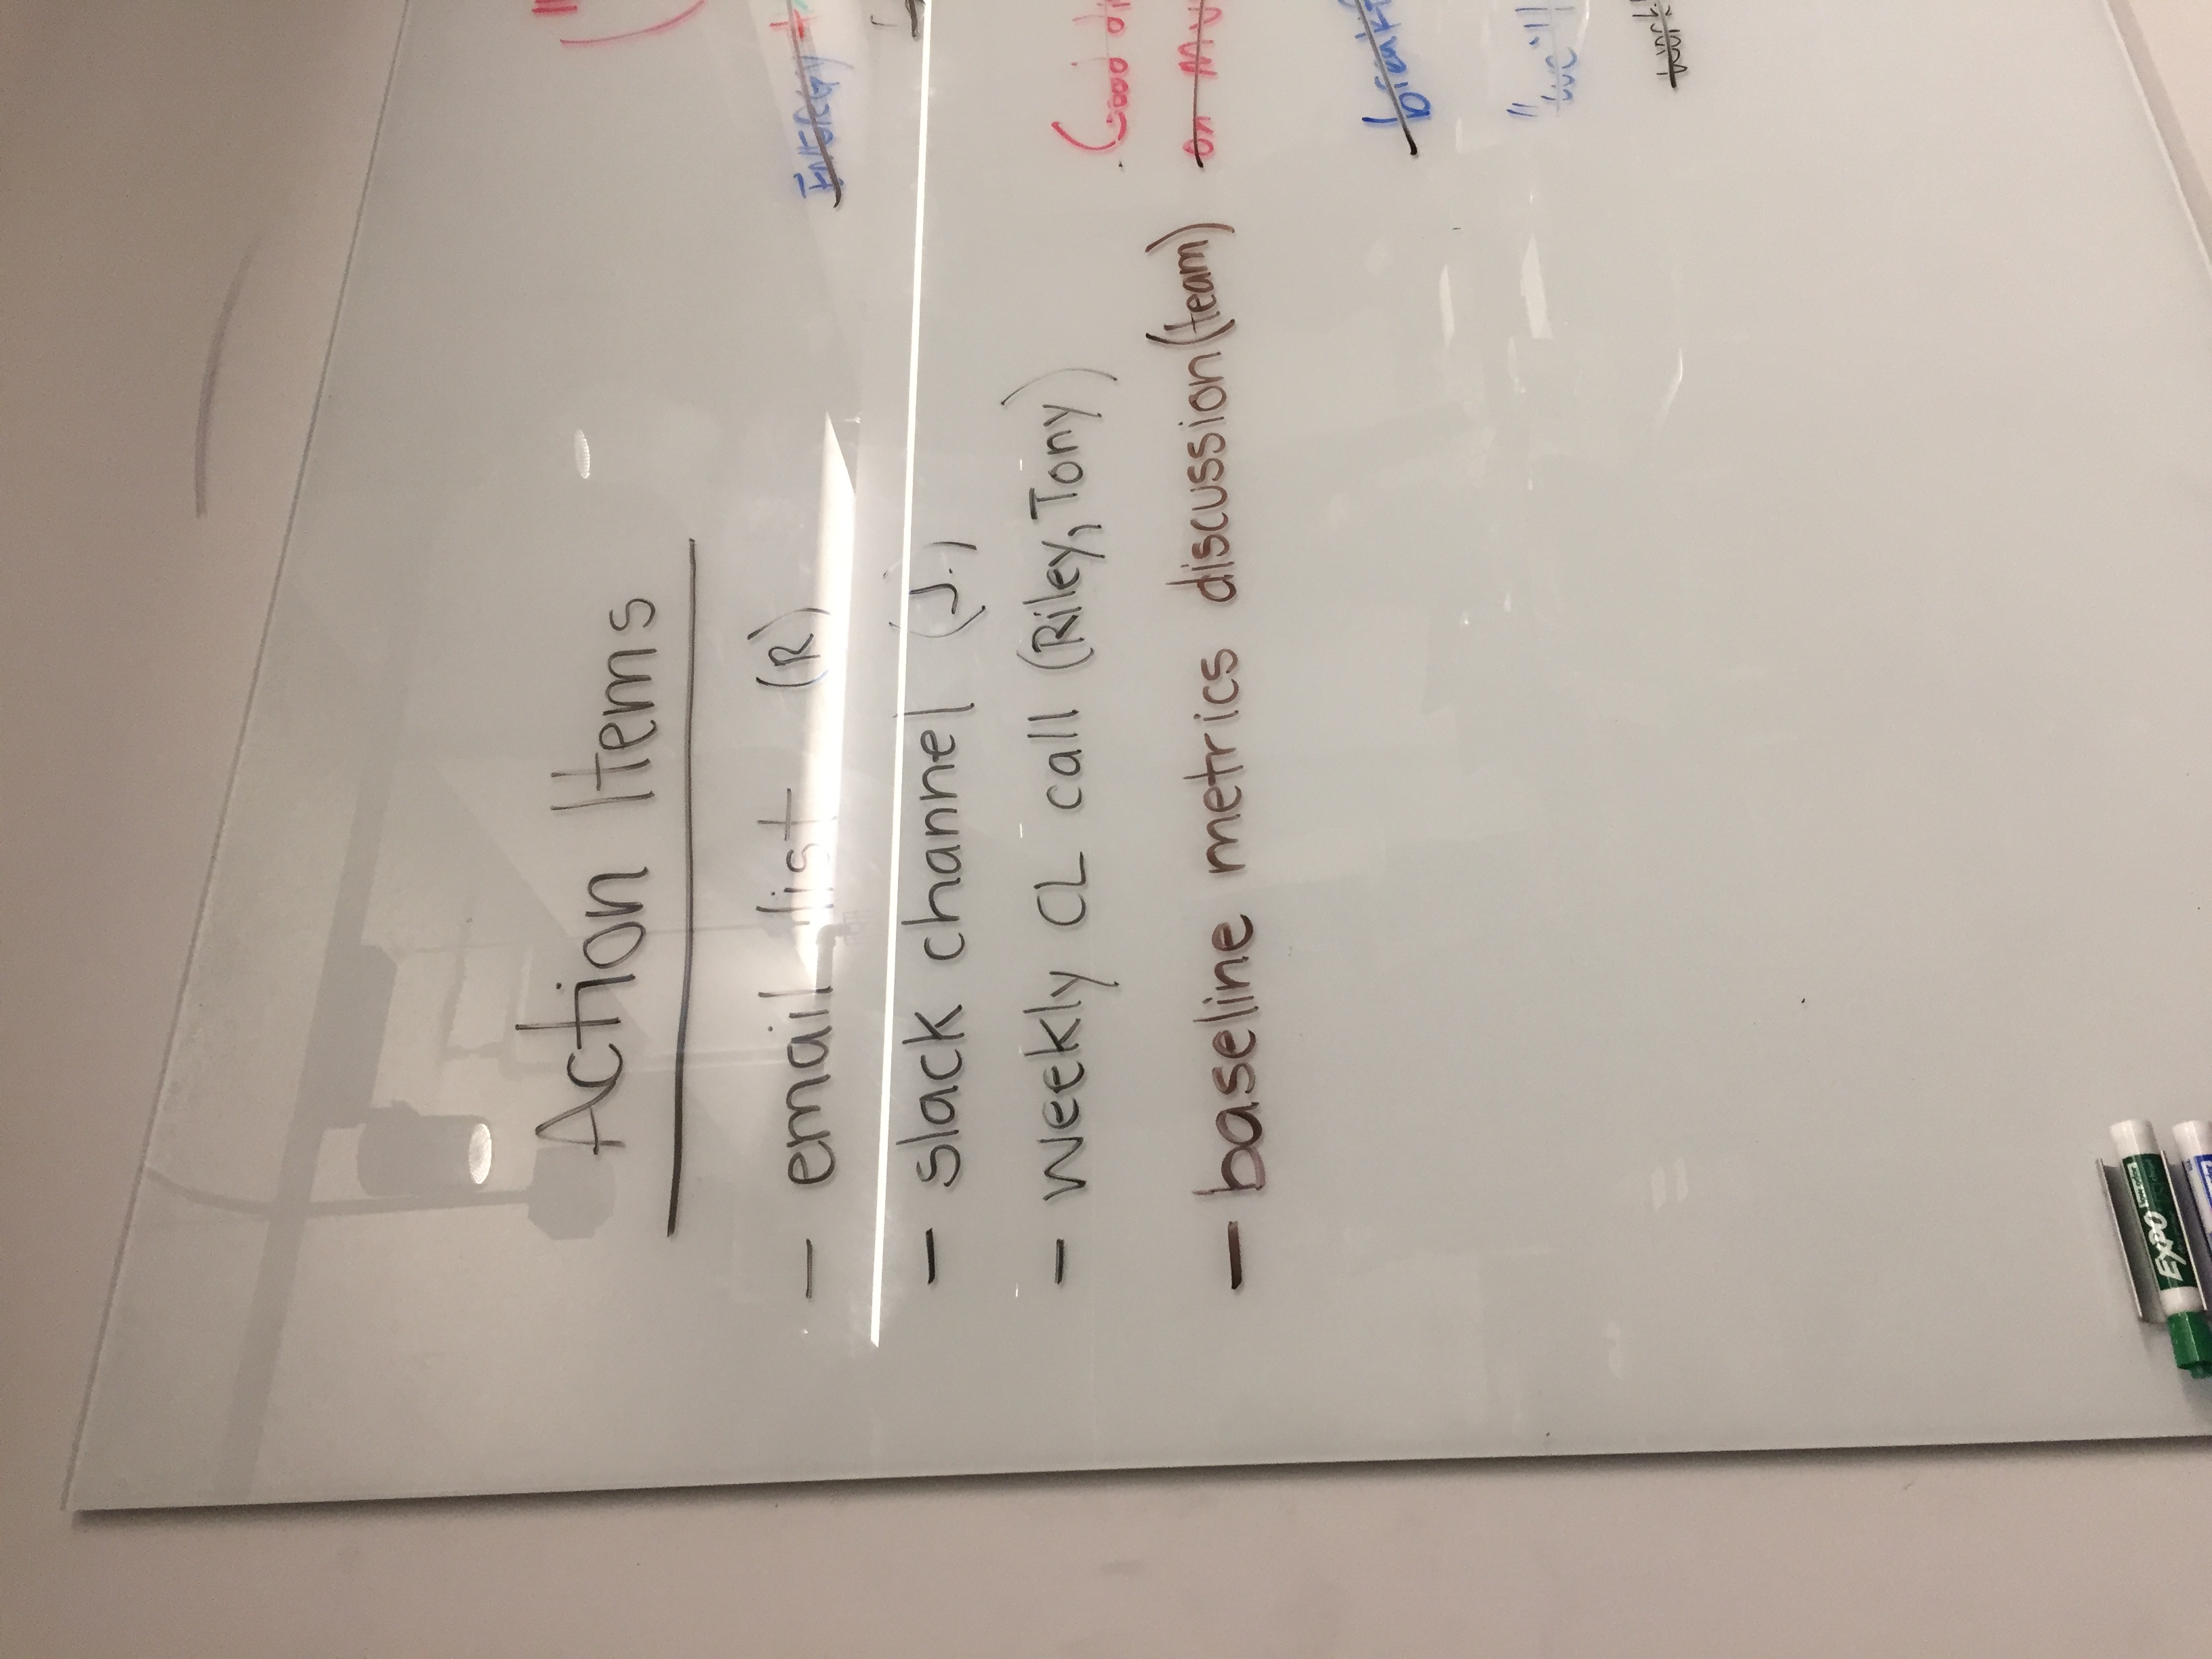 Action Items
- email list (R)
- slack channel (J.)
- weekly CL call (Riley, Tony)
- baseline metrics discussion (team)
ENERGY
Good
on
"we'll
EXPO
low odor